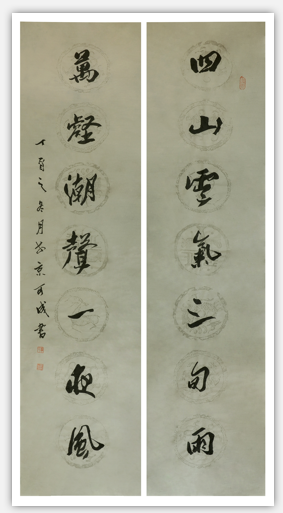 四山雲氣三旬雨
萬壑潮聲一夜風
丁酉之冬月於京可成書